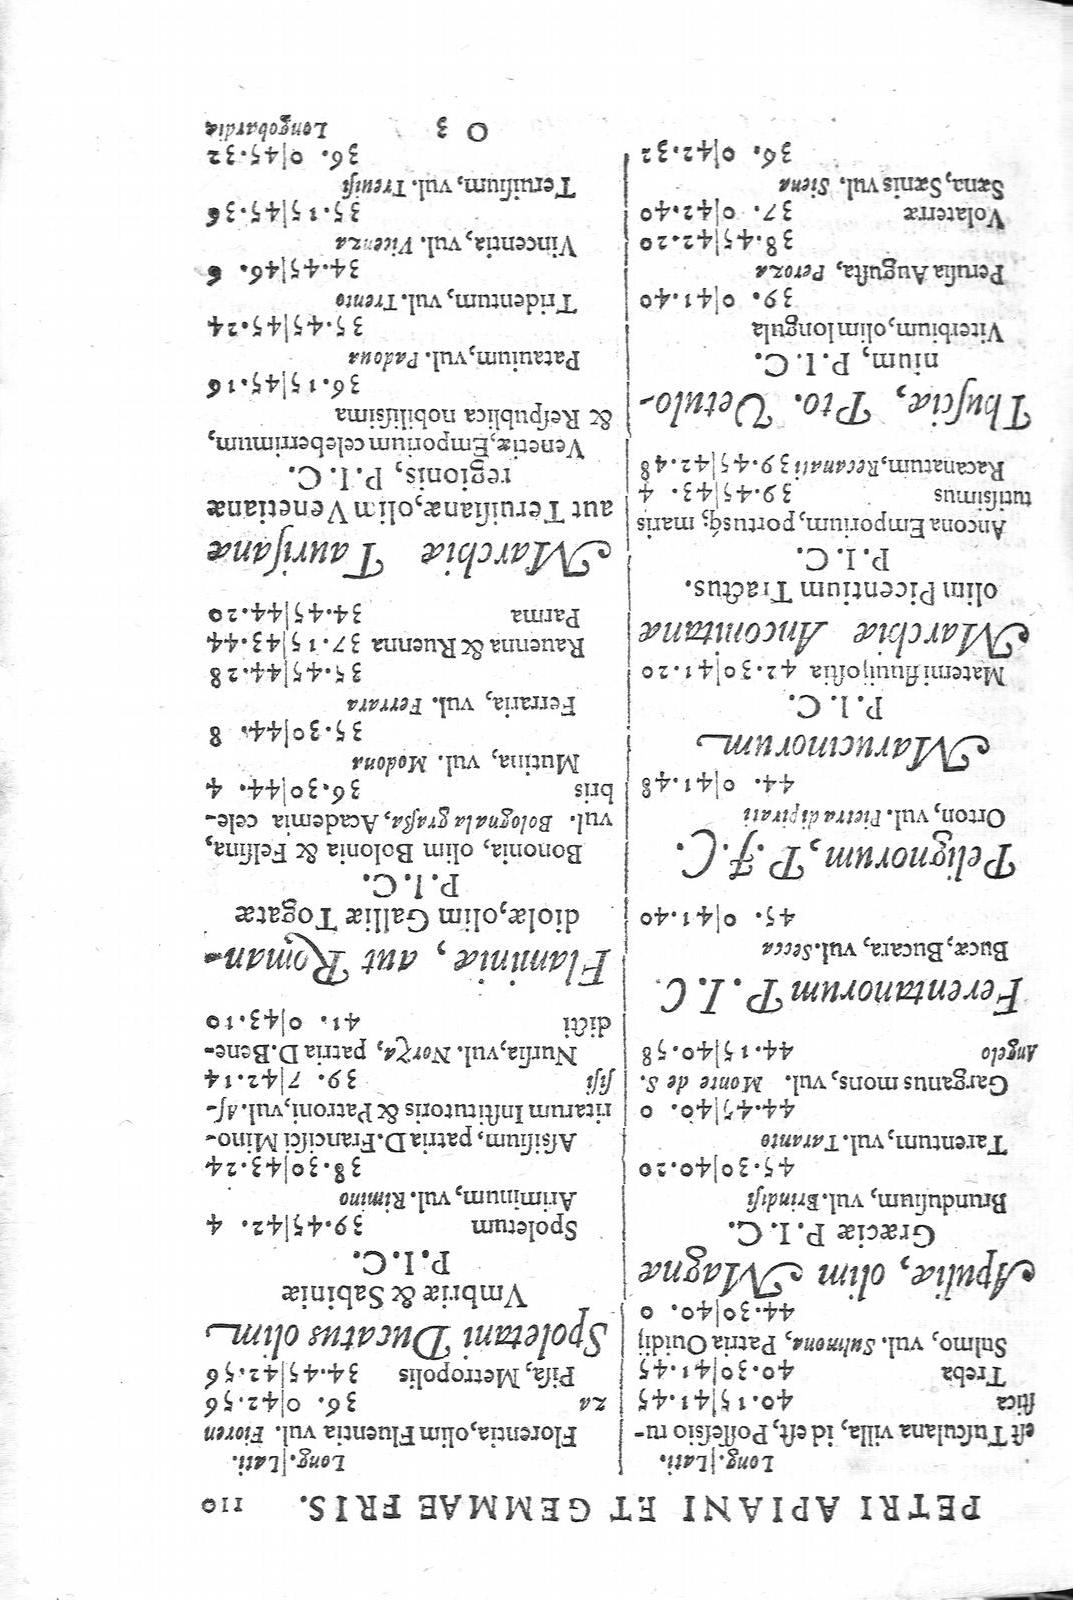 PETRI APIANI ET GEMMAE FRIS. 110
Long.|Lati.
eſt Tuſculana villa, id eſt, Poſſeſsio ru-
ſtica 40.15|41.45
Treba 40.30|41.45
Sulmo, vul. Sulmona, Patria Ouidij
44.30|40. 0
Apuliæ, olim Magnæ
Græciæ P.I.C.
Brunduſium, vul. Brindiſi
45.30|40.20
Tarentum, vul. Taranto
44.45|40. 0
Garganus mons, vul. Monte de S.
Angelo 44.15|40.58
Ferentanorum P.I.C.
Bucæ, Bucara, vul. Secca
45. 0|41.40
Pelignorum, P.I.C.
Orton, vul. Pietra dipirati
44. 0|41.48
Marucinorum
P.I.C.
Materni fluuij oſtia 42.30|41.20
Marchiæ Anconitanæ
olim Picentium Tractus.
P.I.C.
Ancona Emporium, portusq; maris
tutiſsimus 39.45|43. 4
Racanatum, Recanati 39.45|42.48
Thuſciæ, Pto. Vetulo-
nium, P.I.C.
Viterbium, olim longula
39. 0|41.40
Peruſia Auguſta, Peroza
38.45|42.20
Volaterræ 37. 0|42.40
Sæna, Sænis vul. Siena
36. 0|42.32
Long.|Lati.
Florentia, olim Fluentia vul. Fioren
za 36. 0|42.56
Piſa, Metropolis 34.45|42.56
Spoletani Ducatus olim
Vmbriæ & Sabiniæ
P.I.C.
Spoletum 39.45|42. 4
Ariminum, vul. Rimino
38.30|43.24
Aſsiſium, patria D. Franciſci Mino-
ritarum Inſtitutoris & Patroni, vul. Aſ-
ſiſi 39. 7|42.14
Nurſia, vul. Norza, patria D. Bene-
dicti 41. 0|43.10
Flaminiæ, aut Roman-
diolæ, olim Galliæ Togatæ
P.I.C.
Bononia, olim Bolonia & Felſina,
vul. Bologna la graſſa, Academia cele-
bris 36.30|44. 4
Mutina, vul. Modona
35.30|44. 8
Ferraria, vul. Ferrara
35.45|44.28
Rauenna & Ruenna 37.15|43.44
Parma 34.45|44.20
Marchiæ Tauriſanæ
aut Teruiſianæ, olim Venetianæ
regionis, P.I.C.
Venetiæ, Emporium celeberrimum,
& Reſpublica nobiliſsima
36.15|45.16
Patauium, vul. Padoua
35.45|45.24
Tridentum, vul. Trento
34.45|46. 6
Vincentia, vul. Vicenza
35.15|45.36
Teruiſium, vul. Treuiſi
36. 0|45.32
O 3 Longobardiæ